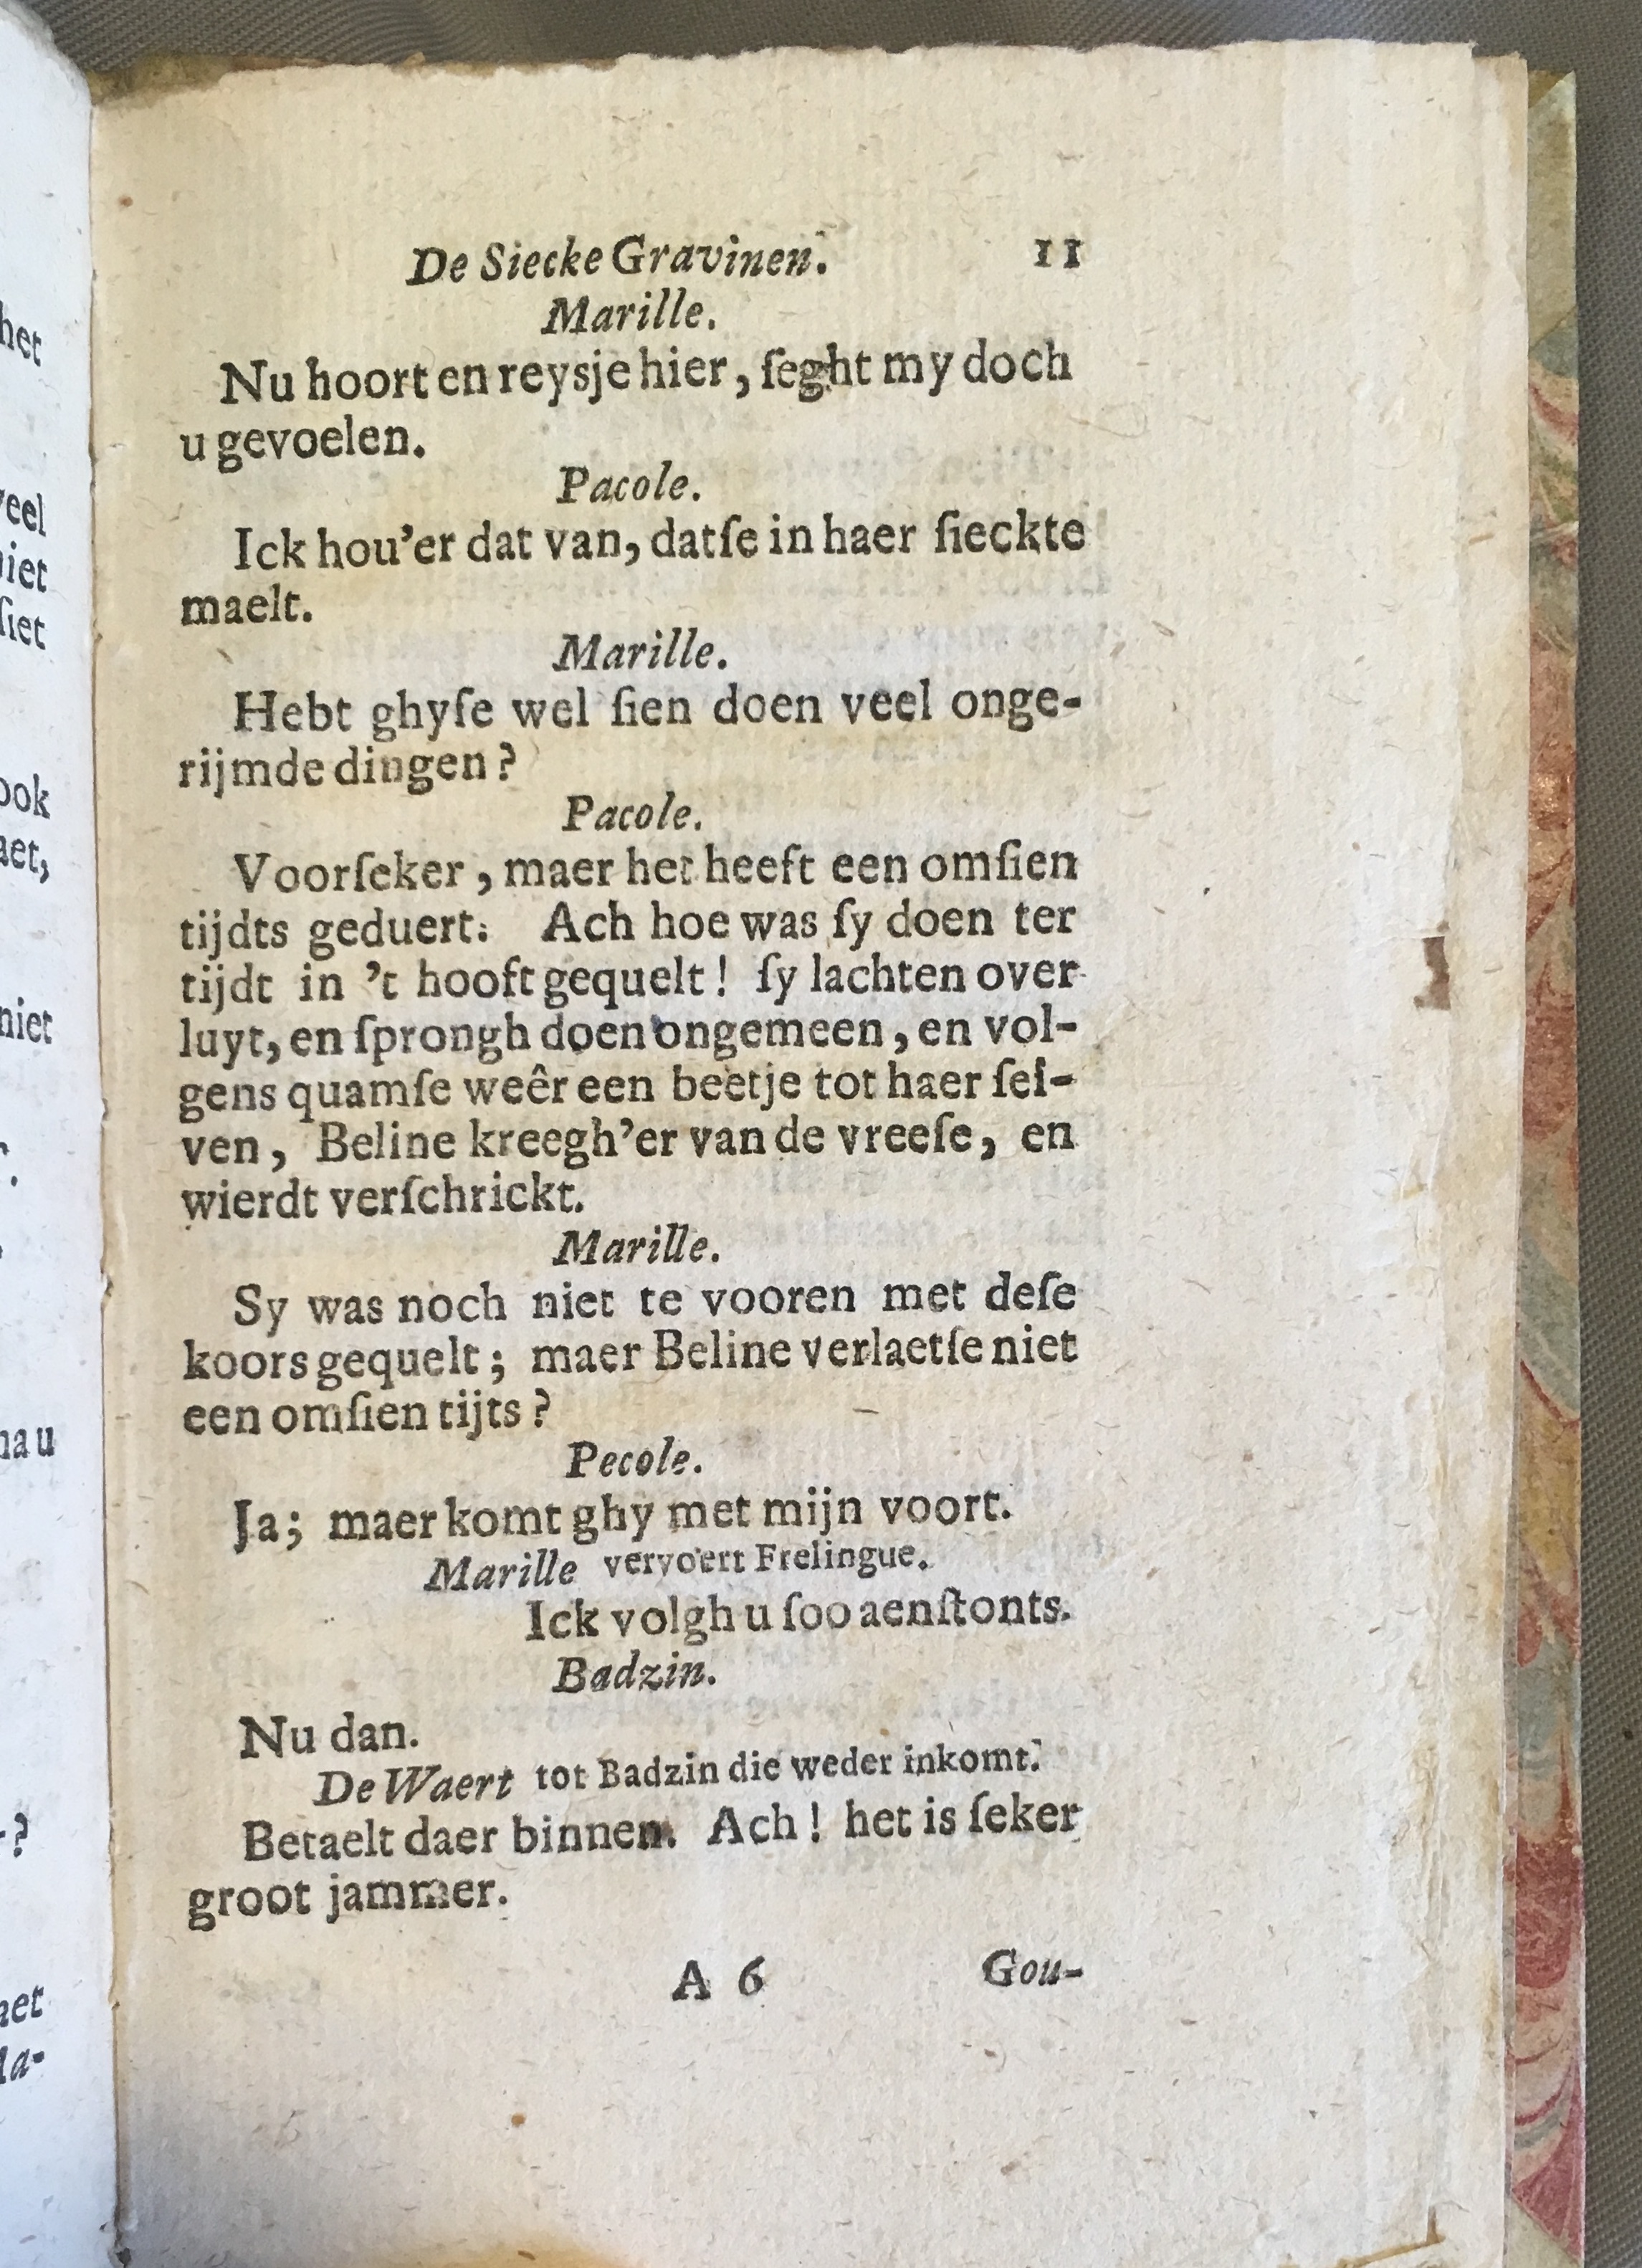 het
veel
niet
ſiet
ook
aet,
niet
nau
-?
aet
la-
De Siecke Gravinen. 11
Marille.
Nu hoort en reysje hier, ſeght my doch
u gevoelen.
Pacole.
Ick hou'er dat van, datſe in haer ſieckte
maelt.
Marille.
Hebt ghyſe wel ſien doen veel onge-
rijmde dingen?
Pacole.
Voorſeker, maer het heeft een omſien
tijdts geduert. Ach hoe was ſy doen ter
tijdt in 't hooft gequelt! ſy lachten over
luyt, en ſprongh doen ongemeen, en vol-
gens quamſe weêr een beetje tot haer ſel-
ven, Beline kreegh'er van de vreeſe, en
wierdt verſchrickt.
Marille.
Sy was noch niet te vooren met deſe
koors gequelt; maer Beline verlaetſe niet
een omſien tijts?
Pecole.
Ja; maer komt ghy met mijn voort.
Marille vervoert Frelingue.
Ick volgh u ſoo aenſtonts.
Badzin.
Nu dan.
De Waert tot Badzin die weder inkomt.
Betaelt daer binnen. Ach! het is ſeker
groot jammer.
A 6 Gou-